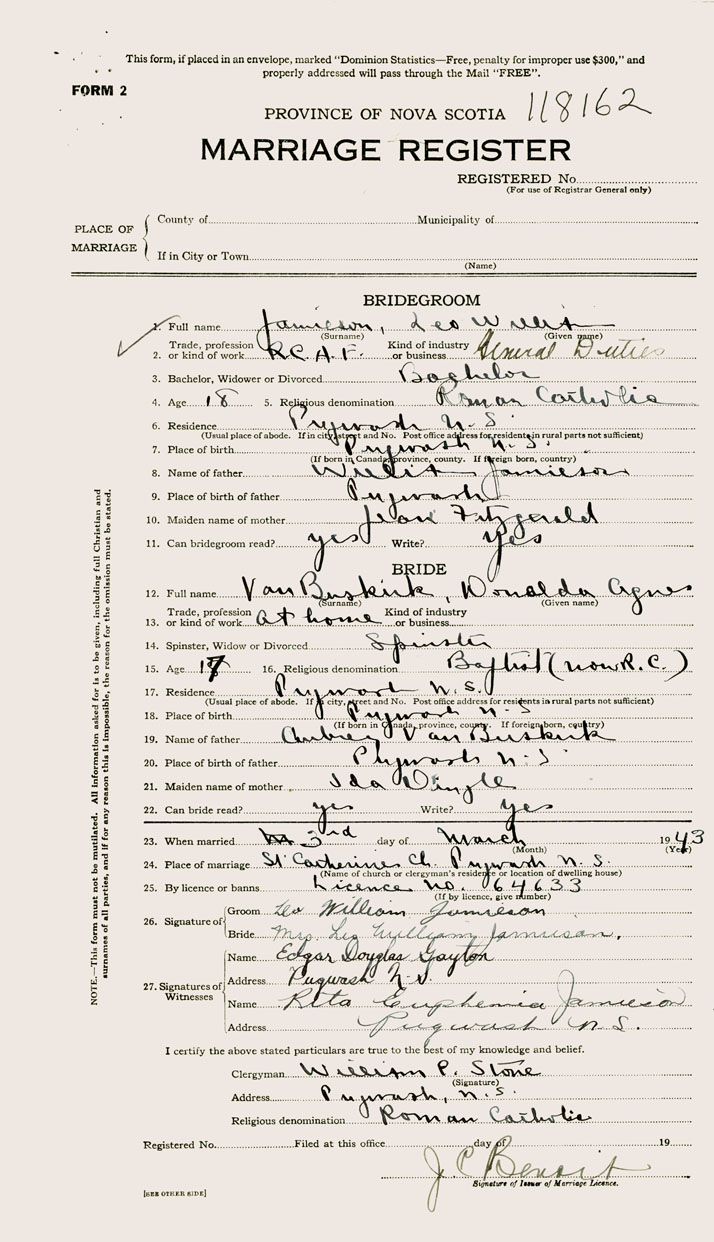 This form, if placed in an envelope, marked "Dominion Statistics—Free, penalty for improper use $300," and
properly addressed will pass through the Mail "FREE".
FORM 2
PROVINCE OF NOVA SCOTIA 118162
MARRIAGE REGISTER
REGISTERED No.
(For use of Registrar General only)
PLACE OF MARRIAGE
County of Municipality of
If in City or Town
(Name)
BRIDEGROOM
1. Full name Jamieson, Leo
(Surname) (Given name)
2. Trade, profession or kind of work R.C.A.F. Kind of industry or business General Duties
3. Bachelor, Widower or Divorced Bachelor
4. Age 18 5. Religious denomination Roman Catholic
6. Residence Pugwash N.S.
(Usual place of abode. If in city, street and No. Post office address for residents in rural parts not sufficient)
7. Place of birth Pugwash N.S.
(If born in Canada, province, county. If foreign born, country)
8. Name of father Jamieson
9. Place of birth of father Pugwash
10. Maiden name of mother Jean Fitzgerald
11. Can bridegroom read? yes Write? yes
BRIDE
12. Full name VanBuskirk, Donalda Agnes
(Surname) (Given name)
13. Trade, profession or kind of work at home Kind of industry or business
14. Spinster, Widow or Divorced Spinster
15. Age 17 16. Religious denomination Baptist (now R.C.)
17. Residence Pugwash N.S.
(Usual place of abode. If in city, street and No. Post office address for residents in rural parts not sufficient)
18. Place of birth Pugwash N.S
(If born in Canada, province, county. If foreign born, country)
19. Name of father Aubrey VanBuskirk
20. Place of birth of father Pugwash N.S
21. Maiden name of mother Ida
22. Can bride read? yes Write? yes
23. When married 3rd day of March 1943
(Month) (Year)
24. Place of marriage St Catherines Ch. Pugwash N.S.
(Name of church or clergyman's residence or location of dwelling house)
25. By licence or banns Licence no. 64633
(If by licence, give number)
26. Signature of
Groom Leo William Jamieson
Bride Mrs. Leo William Jamieson,
27. Signatures of Witnesses
Name Edgar Douglas Gayton
Address Pugwash N.S.
Name Rita Euphemia Jamieson
Address Pugwash N.S.
I certify the above stated particulars are true to the best of my knowledge and belief.
Clergyman William P. Stone
(Signature)
Address Pugwash, N.S.
Religious denomination Roman Catholic
Registered No. Filed at this office day of 19
J C Benoit
Signature of Issuer of Marriage Licence.
[SEE OTHER SIDE]
NOTE.—This form must not be mutilated. All information asked for is to be given, including full Christian and
surnames of all parties, and if for any reason this is impossible, the reason for the omission must be stated.